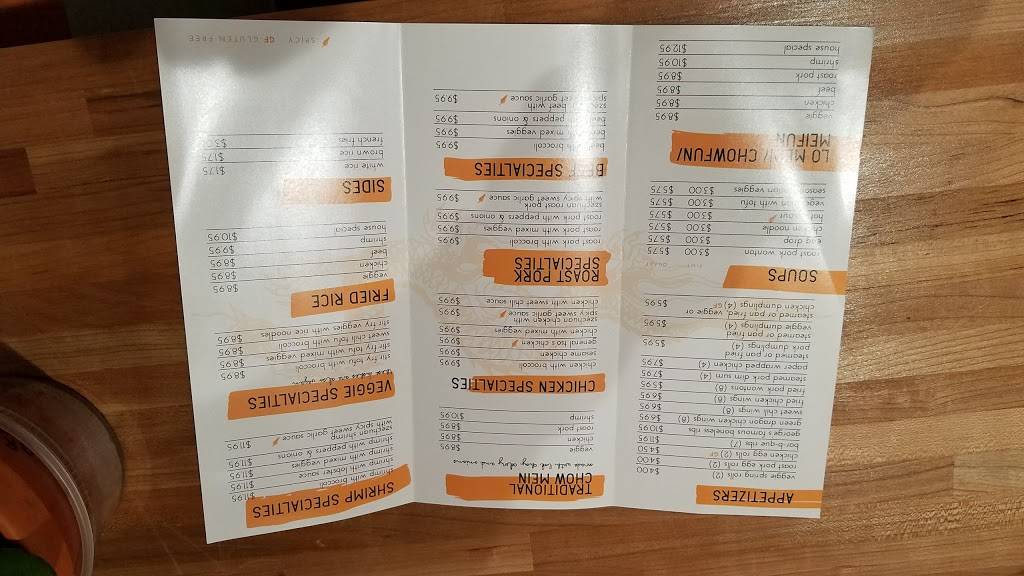 APPETIZERS
veggie spring rolls (2) $4.00
roast pork egg rolls (2) $4.00
chicken egg rolls (2) GF $4.50
bar-b-que ribs (7) $11.95
george's famous boneless ribs $10.95
green dragon chicken wings (8) $6.95
sweet chili wings (8) $6.95
fried chicken wings (8) $6.95
fried pork wontons (8) $5.95
steamed pork dim sum (4) $7.95
paper wrapped chicken (4) $7.95
steamed or pan fried
pork dumplings (4) $5.95
steamed or pan fried
veggie dumplings (4) $5.95
steamed or pan fried, veggie or
chicken dumplings (4) GF $5.95
SOUPS
roast pork wonton $3.00 $5.75
egg drop $3.00 $5.75
chicken noodle $3.00 $5.75
hot & sour $3.00 $5.75
vegetarian with tofu $3.00 $5.75
season chicken veggies $3.00 $5.75
LO MEIN/ CHOWFUN/
MEIFUN
veggie $8.95
chicken $8.95
beef $8.95
roast pork $8.95
shrimp $10.95
house special $12.95
TRADITIONAL
CHOW MEIN
made with celery and onions
veggie $8.95
chicken $8.95
roast pork $8.95
shrimp $10.95
CHICKEN SPECIALTIES
sesame chicken $9.95
chicken with broccoli $9.95
general tso's chicken $9.95
chicken with mixed veggies $9.95
szechuan chicken with
spicy sweet garlic sauce $9.95
chicken with sweet chili sauce $9.95
ROAST PORK
SPECIALTIES
roast pork with broccoli $9.95
roast pork with mixed veggies $9.95
roast pork with peppers & onions $9.95
szechuan roast pork
with spicy sweet garlic sauce $9.95
BEEF SPECIALTIES
beef with broccoli $9.95
beef with mixed veggies $9.95
beef with peppers & onions $9.95
szechuan beef with
spicy sweet garlic sauce $9.95
SHRIMP SPECIALTIES
shrimp with broccoli $11.95
shrimp with lobster sauce $11.95
shrimp with mixed veggies $11.95
shrimp with peppers & onions $11.95
szechuan shrimp
with spicy sweet garlic sauce $11.95
VEGGIE SPECIALTIES
stir fry tofu with broccoli $8.95
stir fry tofu with mixed veggies $8.95
sweet chili tofu with broccoli $8.95
stir fry veggies with rice noodles $8.95
FRIED RICE
veggie $8.95
chicken $8.95
beef $8.95
shrimp $9.95
house special $10.95
SIDES
white rice $1.75
brown rice $1.75
french fries
SPICY GF GLUTEN FREE